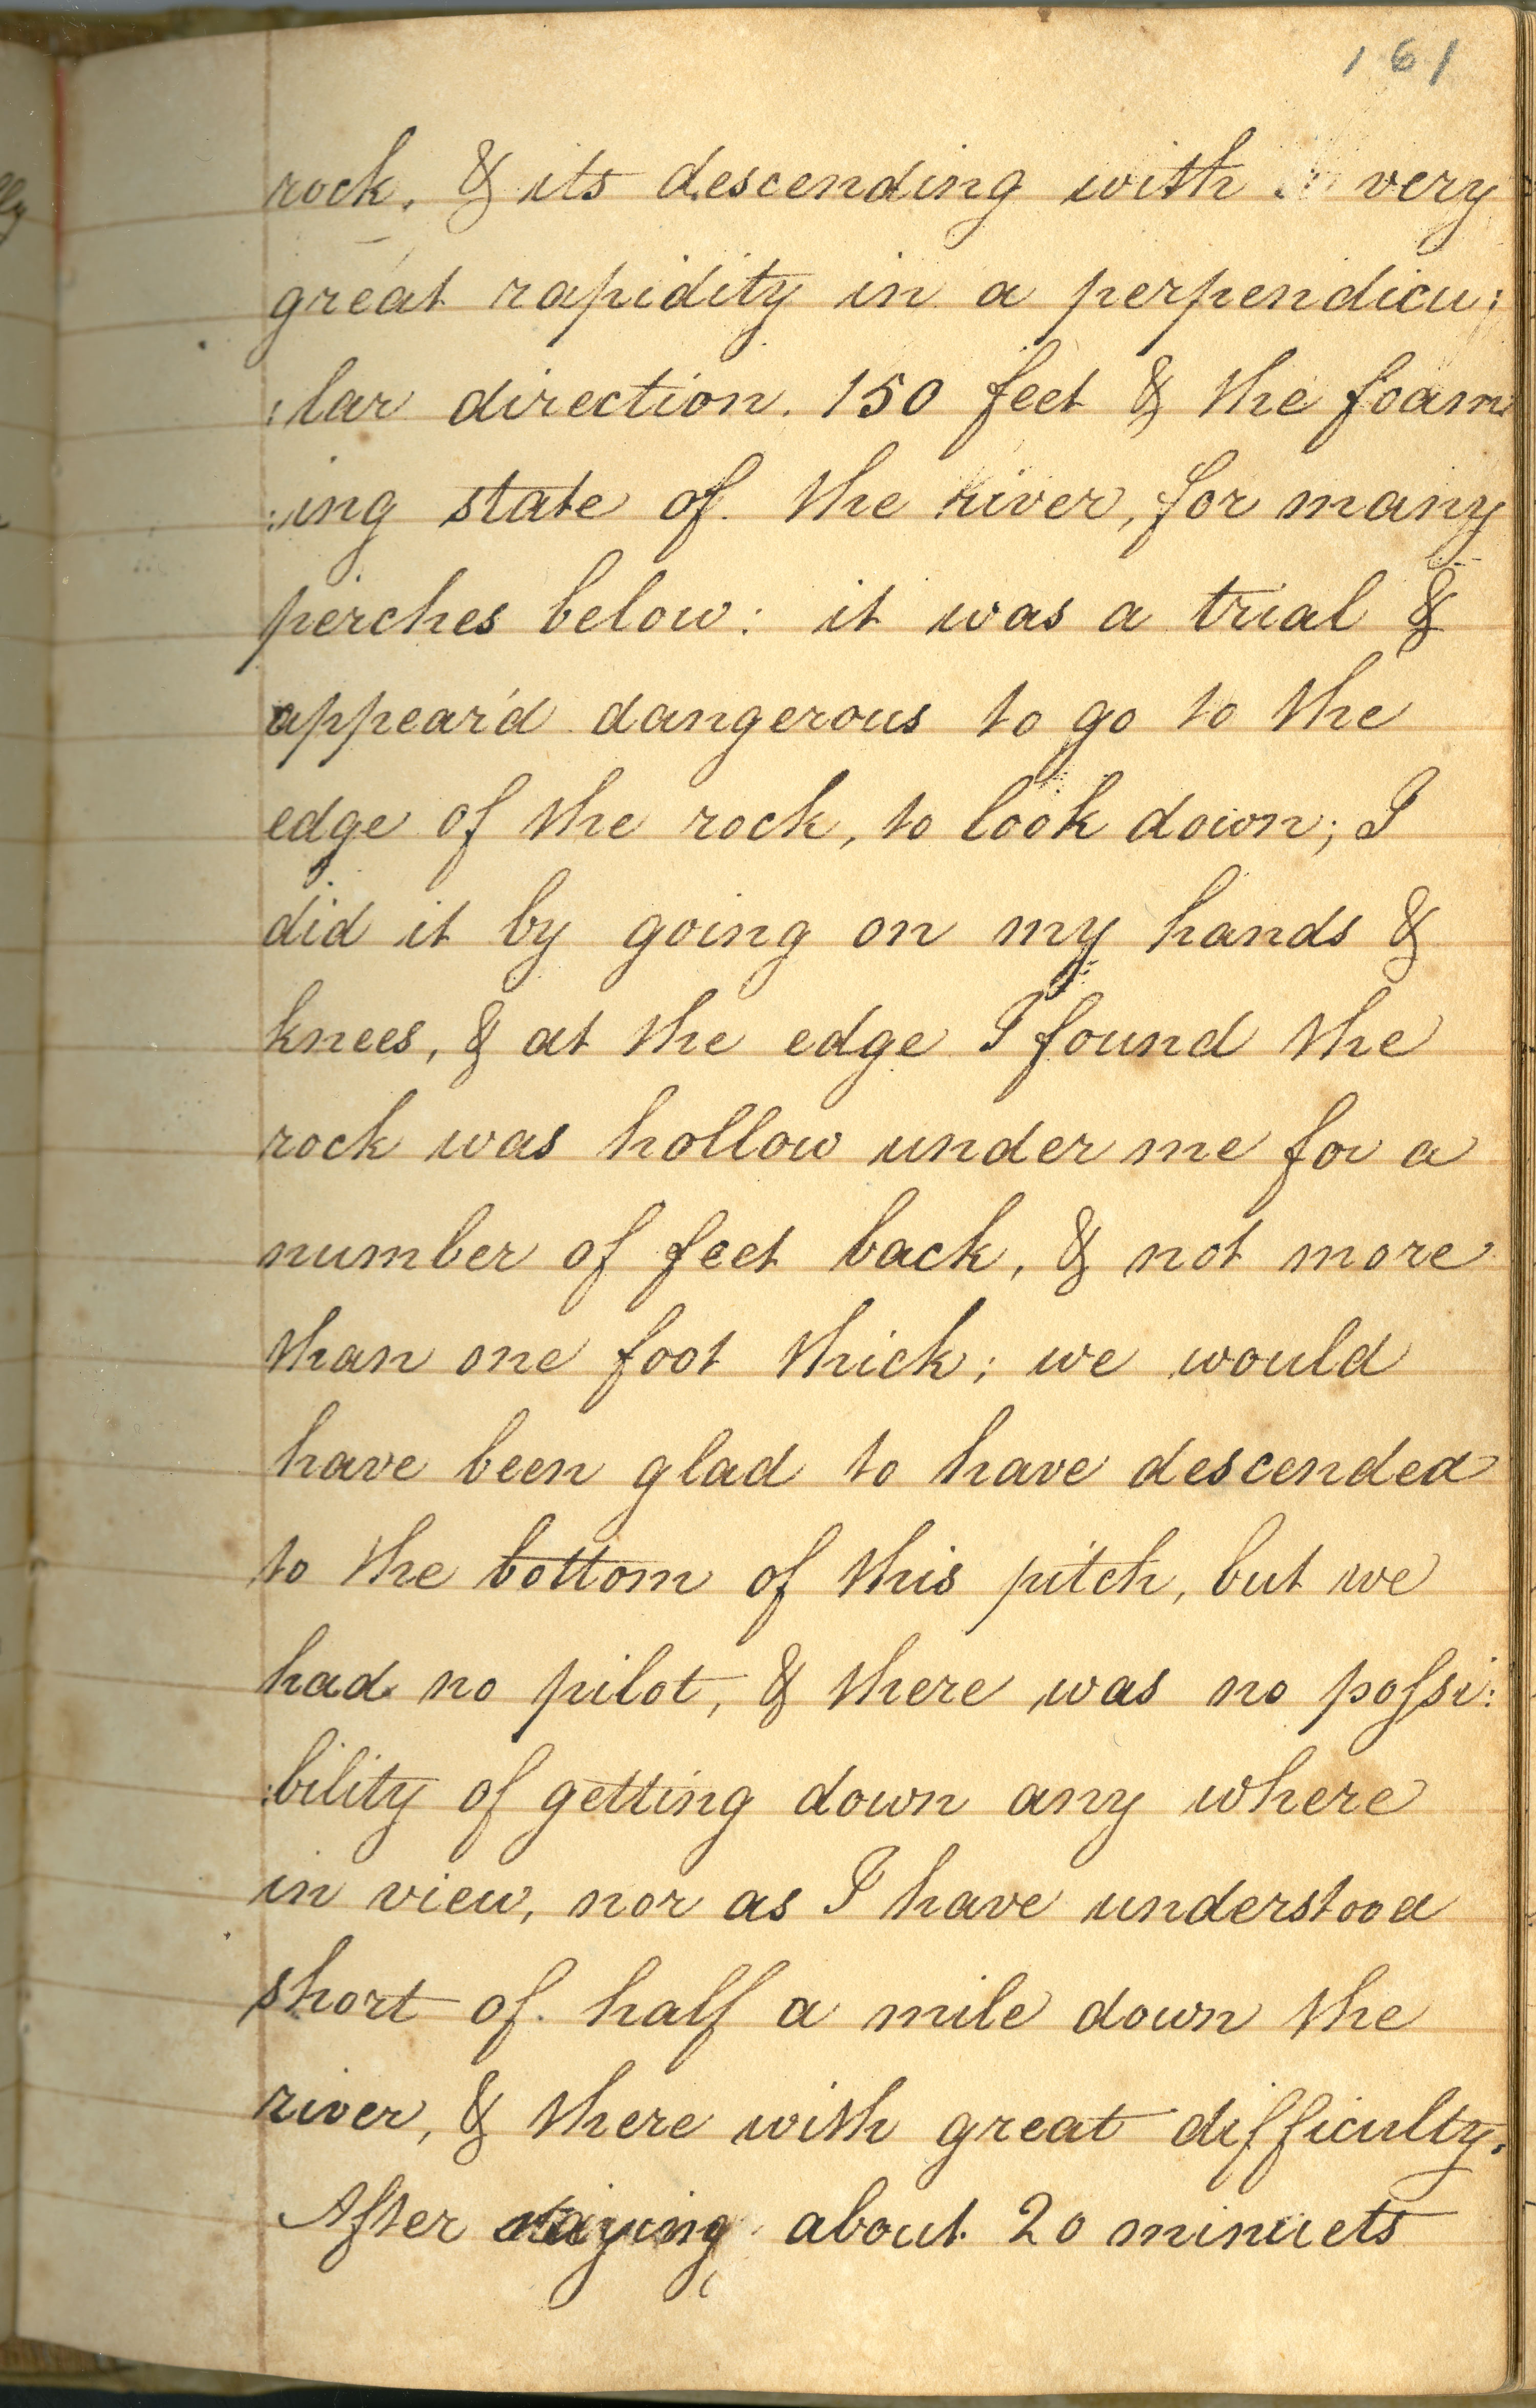 161
rock, & its descending with very
great rapidity in a perpendicu:
:lar direction. 150 feet & the foam
:ing state of the river, for many
perches below: it was a trial &
appear'd dangerous to go to the
edge of the rock, to look down; I
did it by going on my hands &
knees, & at the edge I found the
rock was hollow under me for a
number of feet back, & not more
than one foot thick; we would
have been glad to have descended
to the bottom of this pitch, but we
had no pilot, & there was no possi:
:bility of getting down any where
in view, nor as I have understood
short of half a mile down the
river, & there with great difficulty.
After staying about 20 minuets